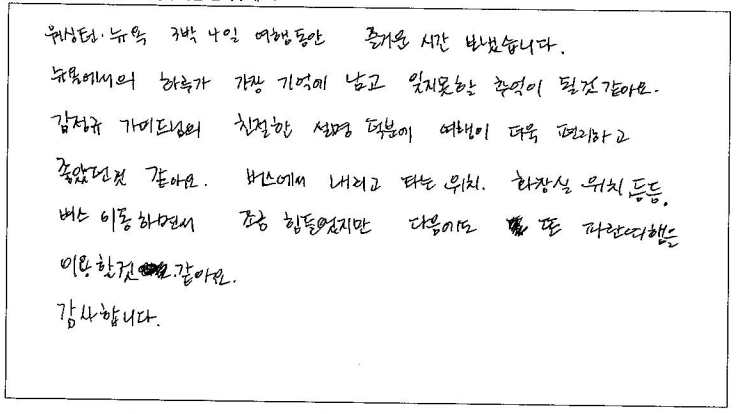 워싱턴·뉴욕 3박 4일 여행동안 즐거운 시간 보냈습니다.
뉴욕에서의 하루가 가장 기억에 남고 잊지못할 추억이 될것같아요.
김정규 가이드님의 친절한 설명 덕분에 여행이 더욱 편리하고
좋았던것 같아요. 버스에서 내리고 타는 위치. 화장실 위치 등등.
버스 이동하면서 조금 힘들었지만 다음에도 또 파란여행을
이용할것 같아요.
감사합니다.